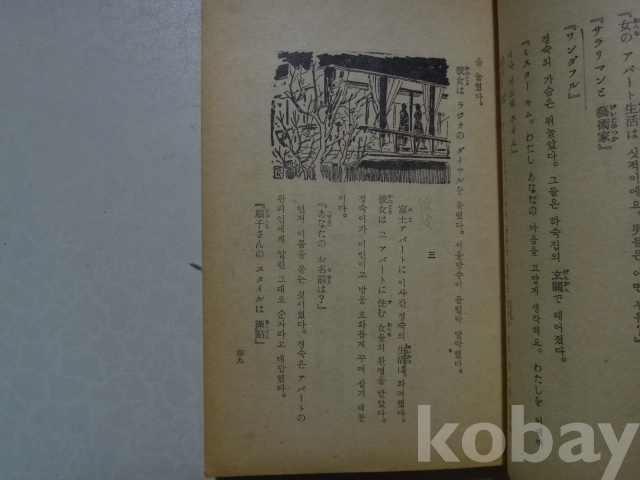 『女の アパート生活は 싯적이에요 男들은
『サラリマンと 藝術家』
『ワンダフル』
경숙의 가슴은 뛰놀았다. 그들은 하숙집의 玄關で 헤어졌다.
『ミスター キム。わたし あなたの 마음을 고맙게 생각해요。わたしを
을 눌렀다.
彼女は ラジオの ダイヤルを 돌렸다. 서울방송이 말락했다.
三
富士アパートに 이사간 경숙의 生活は 화려했다.
彼女は 그 アパートに 住む 女들의 환영을 받았다.
경숙이가 미인이고 방을 호화롭게 꾸며 살기 때문
이다.
『あなたの お名前は?』
먼저 이름을 묻는 것이었다. 경숙은 アパートの
관리인에게 알린 그대로 순자라고 대답했다.
『順子さんの スタイルは 滿點』
四九
kobay